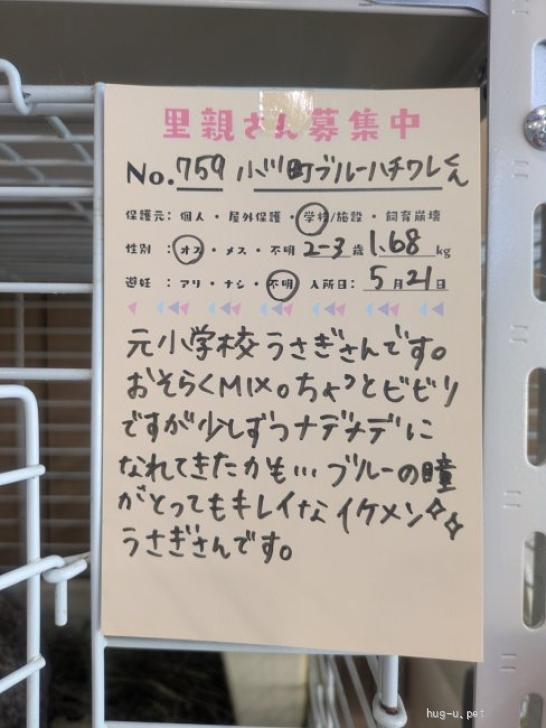 里親さん募集中
No.759 小川町ブルーハチワレくん
保護元: 個人 ・ 屋外保護 ・ 学校/施設 ・ 飼育崩壊
性別 : オス ・ メス ・ 不明 2-3 歳 1.68 kg
避妊 : アリ ・ ナシ ・ 不明 入所日: 5月21日
元小学校うさぎさんです。
おそらくMIX。ちょっとビビリ
ですが少しずつナデナデに
なれてきたかも… ブルーの瞳
がとってもキレイな イケメン
うさぎさんです。
hug-u.pet